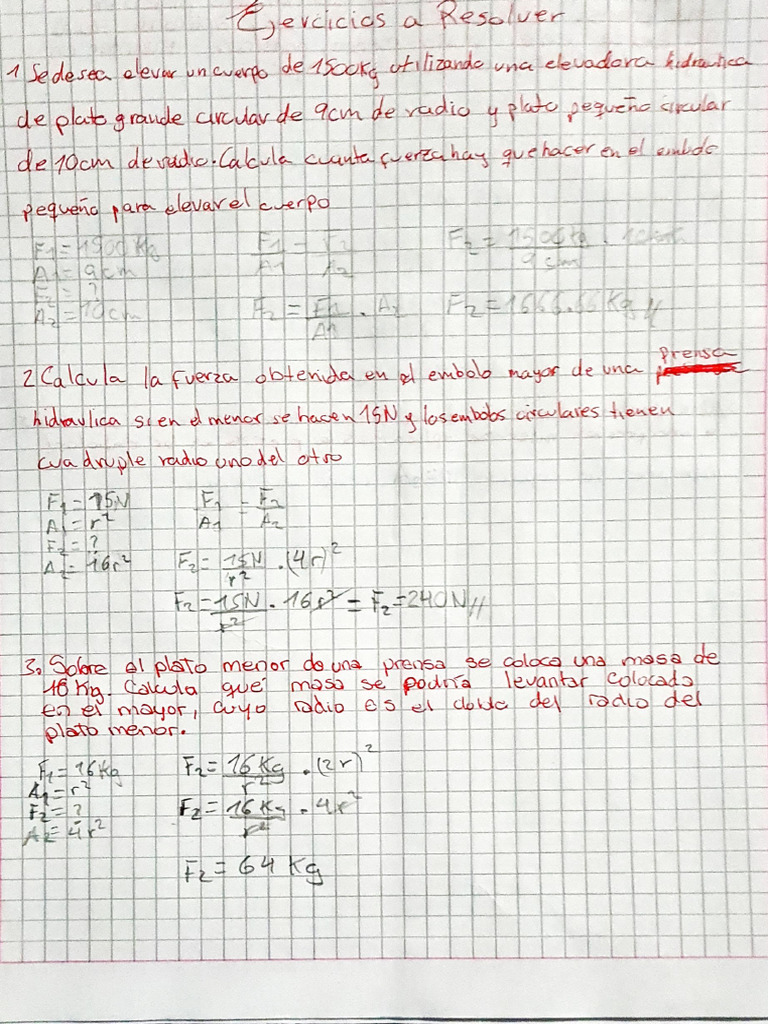 Ejercicios a Resolver
1 Se desea elevar un cuerpo de 1500Kg utilizando una elevadora hidraulica
de plato grande circular de 9cm de radio y plato pequeño circular
de 10cm de radio. Calcula cuanta fuerza hay que hacer en el embolo
pequeño para elevar el cuerpo
F1 = 1500 Kg
A1 = 9cm
F2 = ?
A2 = 10cm
F1/A1 = F2/A2
F2 = F1/A1 . A2
F2 = 1500Kg/9cm . 10cm
F2 = 1666.66 Kg //
2 Calcula la fuerza obtenida en el embolo mayor de una prensa
hidraulica si en el menor se hacen 15N y los embolos circulares tienen
cuadruple radio uno del otro
F1 = 15N
A1 = r²
F2 = ?
A2 = 16r²
F1/A1 = F2/A2
F2 = 15N/r² . (4r)²
F2 = 15N/r² . 16r² = F2 = 240N //
3. Sobre el plato menor de una prensa se coloca una masa de
16 Kg. Calcula que masa se podría levantar colocado
en el mayor, cuyo radio es el doble del radio del
plato menor.
F1 = 16Kg
A1 = r²
F2 = ?
A2 = 4r²
F2 = 16 Kg/r² . (2r)²
F2 = 16 Kg/r² . 4r²
F2 = 64 Kg